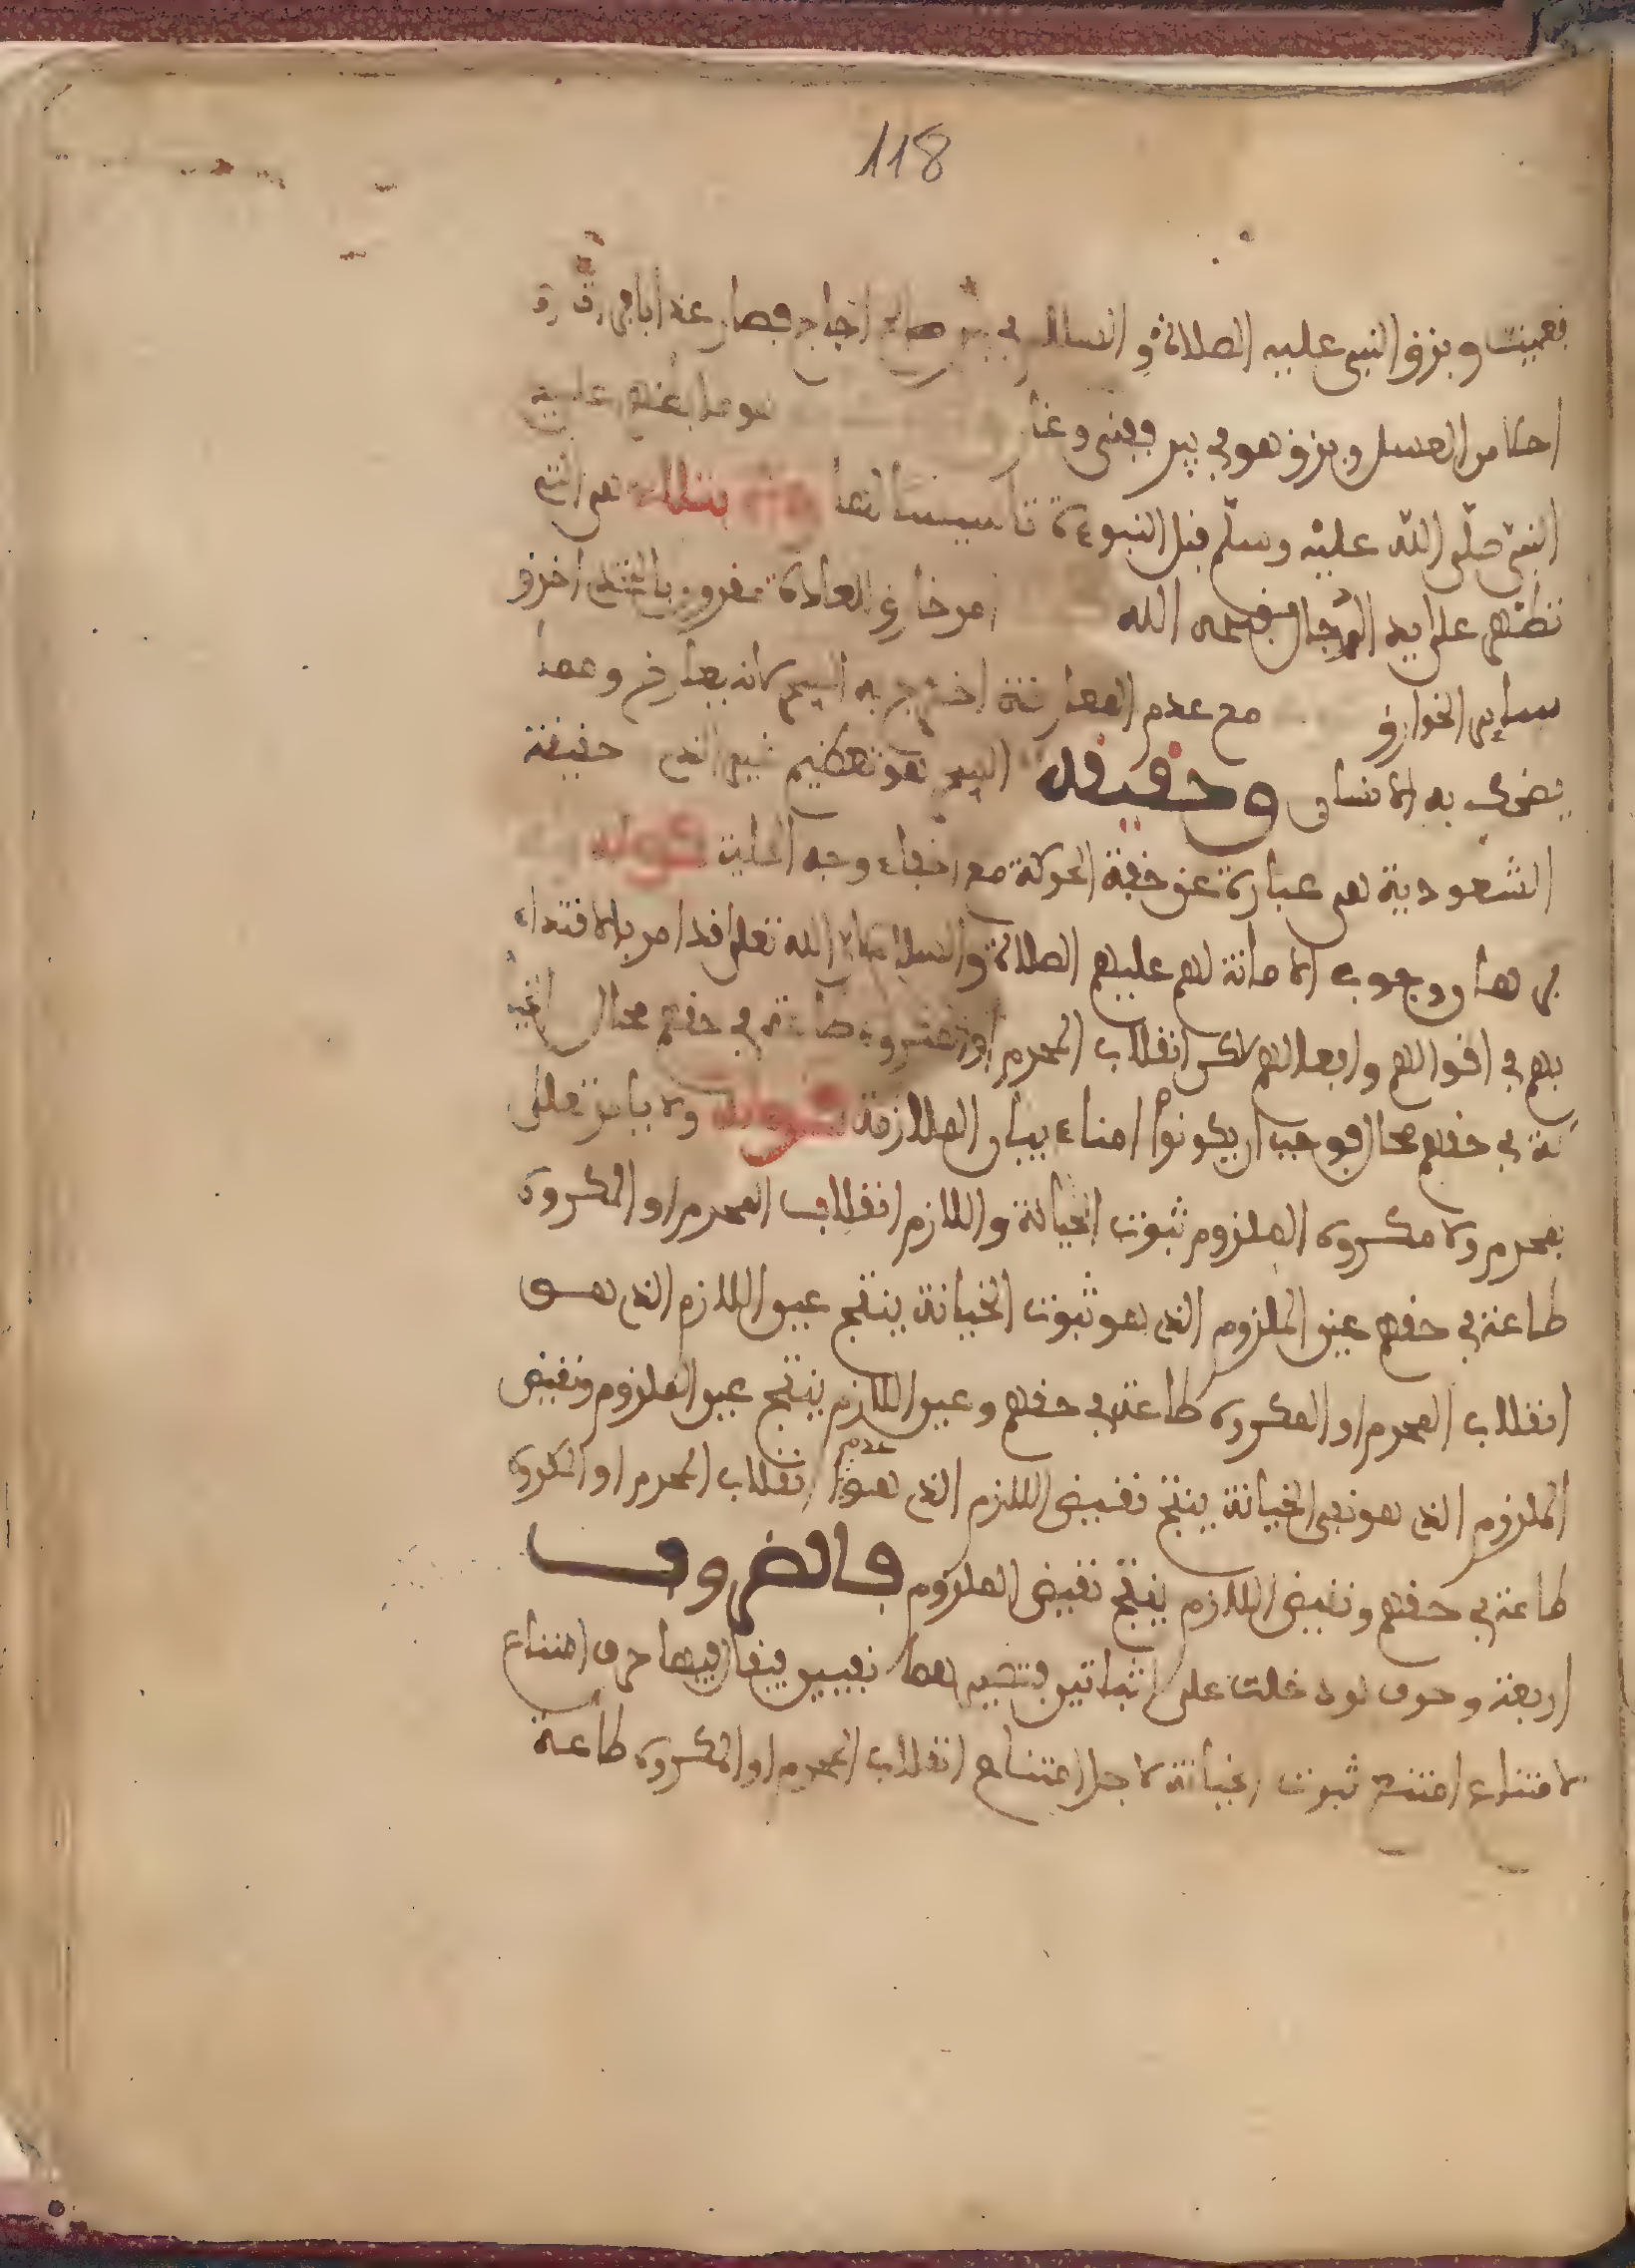 118
فعميت وبزق النبي عليه الصلاة والسلام في بير ماله اجاج فصار عذبا
احلا من العسل وبزق هو في بير
النبي صلى الله عليه وسلم قبل النبوءة تاسيسا لها بتلك هي التي
تظهر على يد الدجال قبحه الله امر خارق للعادة مقرون بالتحدي اخرق
ساير الخوارق مع عدم المعارضة اخترج به السحر لانه يعارض وعما
يضحك به الانسان وحقيقة السحر هو تعظيم غير الذي حقيقة
الشعوذية هي عبارة عن خفة الحركة مع اخفاء وجه الحلية كونه
برهان وجوب الامانة لهم عليهم الصلاة والسلام الله تعلى قد امر بالاقتداء
بهم في اقوالهم وافعالهم لاكن انقلاب المحرم او المكروه طاعة في حقهم محال الخيا
نة في حقهم محال فوجب ان يكونوا امناء بيان الملازمة قوله ولا يامر تعلى
بمحرم ولا مكروه الملزوم ثبوت الخيانة واللازم انقلاب المحرم او المكروه
طاعة في حقهم عين الملزوم الذي هو ثبوت الخيانة ينتج عين اللازم الذي هو
انقلاب المحرم او المكروه طاعة في حقهم وعين اللازم ينتج عين الملزوم ونقيض
الملزوم الذي هو نفي الخيانة ينتج نقيض اللازم الذي هو عدم انقلاب المحرم او المكروه
طاعة في حقهم ونقيض اللازم ينتج نقيض الملزوم فالضروب
اربعة وحرف لو دخلت على اثباتين فتصيرهما نفيين فيقال فيها حرف امتناع
لامتناع امتنع ثبوت الخيانة لاجل امتناع انقلاب المحرم او المكروه طاعة